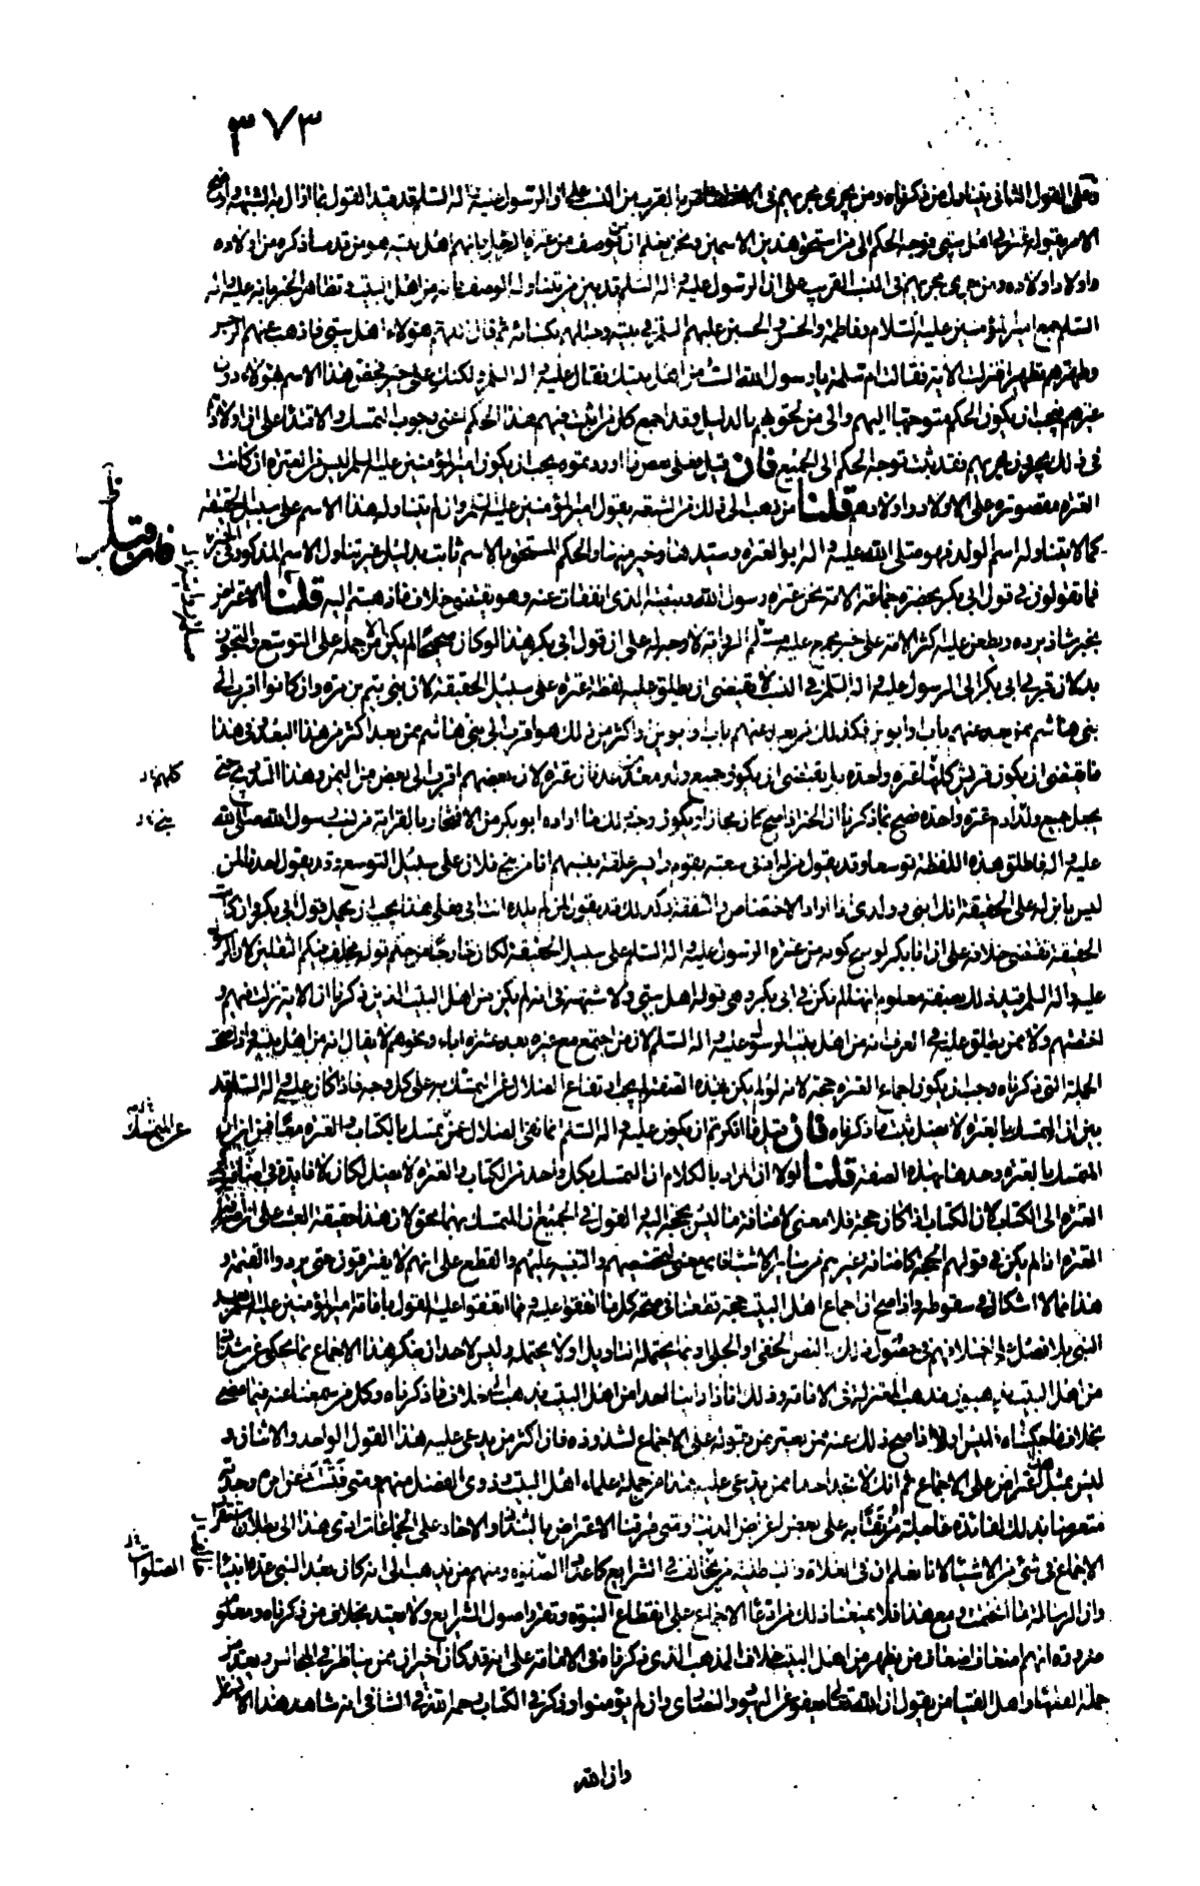 ٣٧٣
وعلى القول الثاني يتناول من ذكرناه ومن جرى مجراهم في الاختصاص بالقرب من النسب على ان الرسول عليه واله السلم قد قيد القول بما ازال به الشبهة واوضح
الامر بقوله عترتي اهل بيتي فوجه الحكم الى من استحق هذين الاسمين ونحن نعلم ان من يوصف من عترة الرجل بانهم اهل بيته هو من قدمنا ذكره من اولاده
واولاد اولاده ومن جرى مجراهم في النسب القريب على ان الرسول عليه واله السلم قد بين من يتناوله الوصف بانه من اهل البيت وتظاهر الخبر بانه عليه واله
السلم جمع امير المؤمنين عليه السلام وفاطمة والحسن والحسين عليهم السلم في بيته وجللهم بكسائه ثم قال اللهم هؤلاء اهل بيتي فاذهب عنهم الرجس
وطهرهم تطهيرا فنزلت الاية فقالت ام سلمة يا رسول الله الست من اهل بيتك فقال عليه واله السلم لا ولكنك على خير فخص هذا الاسم بهؤلاء دون
غيرهم فيجب ان يكون الحكم متوجها اليهم والى من لحق بهم بالدليل وقد اجمع كل من اثبت فيهم هذا الحكم اعني وجوب التمسك والاقتداء على ان اولادهم
في ذلك يجرون مجريهم فقد ثبت توجه الحكم الى الجميع فان قيل فعلى بعض ما اوردتموه يجب ان يكون امير المؤمنين عليه السلم ليس من العترة ان كانت
العترة مقصورة على الاولاد واولادهم قلنا من ذهب الى ذلك من الشيعة يقول امير المؤمنين عليه السلم وان لم يتناوله هذا الاسم على سبيل الحقيقة
كما لا يتناوله اسم الولد فهو صلى الله عليه واله ابو العترة وسيدها وخيرها والحكم المستحق بالاسم ثابت بدليل غير تناول الاسم المذكور في الخبر
فما تقولون في قول ابي بكر بحضرة جماعة الامة نحن عترة رسول الله وبيضته الذي انفقات عنه وهو يقتضي خلاف ما ذهبتم اليه قلنا الاعتراض
بخبر شاذ يرده ويطعن عليه اكثر الامة على خبر مجمع عليه مسلم الرواية لا وجه له على ان قول ابي بكر هذا لو كان صحيحا لم يكن من حمله على التوسع والتجوز
بد لان قرب ابي بكر الى الرسول عليه واله السلم في النسب لا يقتضي ان يطلق عليه لفظة عترة على سبيل الحقيقة لان بني تيم بن مرة وان كانوا اقرب الى
بني هاشم ممن بعد عنهم باب او ابوين فكذلك من بعد عنهم باب او ابوين او اكثر من ذلك هو اقرب الى بني هاشم ممن بعد اكثر من هذا البعد وفي هذا
ما يقتضي ان يكون قريش كلها عترة واحدة بل يقتضي ان يكون جميع ولد معد بن عدنان عترة لان بعضهم اقرب الى بعض من اليمن وهذا التدريج حتى
يجعل جميع ولد ادم عترة واحدة فصح بما ذكرنا ان الخبر اذا صح كان مجازا ويكون وجه ذلك ما اراده ابو بكر من الافتخار بالقرابة من نسب رسول الله صلى الله
عليه واله فاطلق هذه اللفظة توسعا وقد يقول من له ادنى شعبة بقوم وايسر علقة بنسبهم انا من بني فلان على سبيل التوسعة وقد يقول احدنا لمن
ليس بابن له على الحقيقة انك ابني وولدي اذا اراد الاختصاص والشفقة وكذلك قد يقول لمن لم يلده انت ابي فعلى هذا يجب ان يحمل قول ابي بكر وان كانت
الحقيقة تقتضي خلافه على ان ابا بكر لو صح كونه من عترة الرسول عليه واله السلم على سبيل الحقيقة لكان خارجا من حكم قوله مخلف فيكم الثقلين لان الرسول
عليه واله السلم قيد ذلك بصفة معلوم انها لم تكن في ابي بكر وهي قوله اهل بيتي ولا شبهة في انه لم يكن من اهل البيت الذين ذكرنا ان الاية نزلت فيهم و
اختصتهم ولا ممن يطلق عليه في العرف انه من اهل بيت الرسول عليه واله السلم لان من اجتمع مع غيره بعد عشرة اباء ونحوهم لا يقال انه من اهل بيته واذا صحت
الجملة التي ذكرناه وجب ان يكون اجماع العترة حجة لانه لو لم يكن بهذه الصفة لم يجب ارتفاع الضلال عمن تمسك به على كل وجه فاذا كان عليه واله السلم قد
بين ان المتمسك بالعترة لا يضل ثبت ما ذكرناه فان قيل فما انكرتم ان يكون عليه واله السلم انما نفى الضلال عمن تمسك بالكتاب والعترة معا فمن اين ان
المتمسك بالعترة وحدها بهذه الصفة قلنا لولا ان المراد بالكلام ان المتمسك بكل واحد من الكتاب والعترة لا يضل لكان لا فائدة في اضافة ذكر
العترة الى الكتاب لان الكتاب اذا كان حجة فلا معنى لاضافة ما ليس بحجة اليه والقول في الجميع ان المتمسك بهما محق لان هذا حقيقة العبث على ان اضافة
العترة اذا لم يكن في قولهم الحجة كاضافة غيرهم من سائر الاشياء فاي معنى لتخصيصهم والتنبيه عليهم والقطع على انهم لا يفترقون حتى يردوا القيمة و
هذا مما لا اشكال في سقوطه واذا صح ان اجماع اهل البيت حجة قطعنا في صحة كل ما اتفقوا عليه ومما اتفقوا عليه القول بامامة امير المؤمنين عليه السلم بعد
النبي بلا فصل مع اختلافهم في حصول ذلك بالنص الخفي او الجلي او بما يحتمل التاويل او لا يحتمله وليس لاحد ان ينكر هذا الاجماع بما يحكي عن شذاذ
من اهل البيت يذهبون مذهب المعتزلة في الامامة وذلك انا ما راينا احدا من اهل البيت يذهب الى خلاف ما ذكرناه وكل من سمعنا عنه فيما مضى
بخلاف ما حكيناه ليس اولا اذا صح ذلك عنه ممن يعتبر بمن قوله على الاجماع لشذوذه فان اكثر من يدعى عليه هذا القول الواحد والاثنان و
ليس بمثل هذا اعتراض على الاجماع ثم انك لا تجد احدا ممن يدعى عليه هذا من جملة علماء اهل البيت وذوي الفضل منهم ومتى فتشت عن امره وجدته
متعرضا بذلك لفائدة عاجلة مرتفقا به على بعض اغراض الدنيا ومتى طرقنا الاعتراض بالشذاذ والاحاد على الجماعات ادى هذا الى بطلان استقرار
الاجماع في شيء من الاشياء لانا نعلم ان في الغلاة ومن ينسب الى ملتنا من يخالف في الشرايع كاعداد الصلوة ومنهم من يذهب الى انه كان بعد النبي عدة انبياء
وان الرسالة ما انختمت ومع هذا فلا يمنعنا ذلك من ادعاء الاجماع على انقطاع النبوة وتقرر اصول الشرايع ولا يعتد بخلاف من ذكرناه ومعلوم
ضرورة انهم اضعاف اضعاف من يظهر من اهل البيت خلاف المذهب الذي ذكرناه في الامامة على انه قد كان اخبر ان ممن يناظر في المجالس ويعد من
جملة الفقهاء واهل الفتيا من يقول ان الله تعالى يعفو عن اليهود والنصارى وان لم يؤمنوا وذكر في الكتاب رحمه الله في الشافي انه شاهد هذا الانسان
وان الله
فان قيل
ظ
كلهم ظ
بني ظ
عن المتمسك
الصلوات